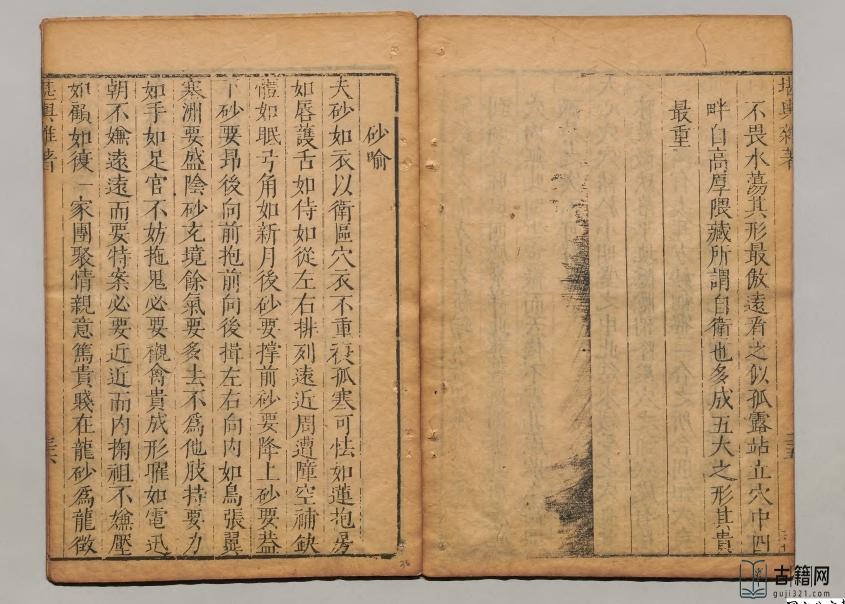 堪輿雜著
不畏水蕩其形最倣遠看之似孤露站立穴中四
畔自高厚隈藏所謂自衛也多成五大之形其貴
最重
砂喻
夫砂如衣以衛區穴衣不重裘孤寒可怯如蓮抱房
如唇護舌如侍如從左右排列遠近周遭障空補缺
體如眠弓角如新月後砂要撑前砂要降上砂要葢
下砂要昻後向前抱前向後揖左右向內如鳥張翼
寒洲要盛陰砂充境餘氣要多去不爲他肢持要力
如手如足官不妨拖鬼必要襯禽貴成形曜如電迅
朝不嫌遠遠而要特案必要近近而內掬祖不嫌壓
如顧如復一家團聚情親意篤貴賤在龍砂爲龍徴
堪輿雜著
三六
古籍网
guji321.com